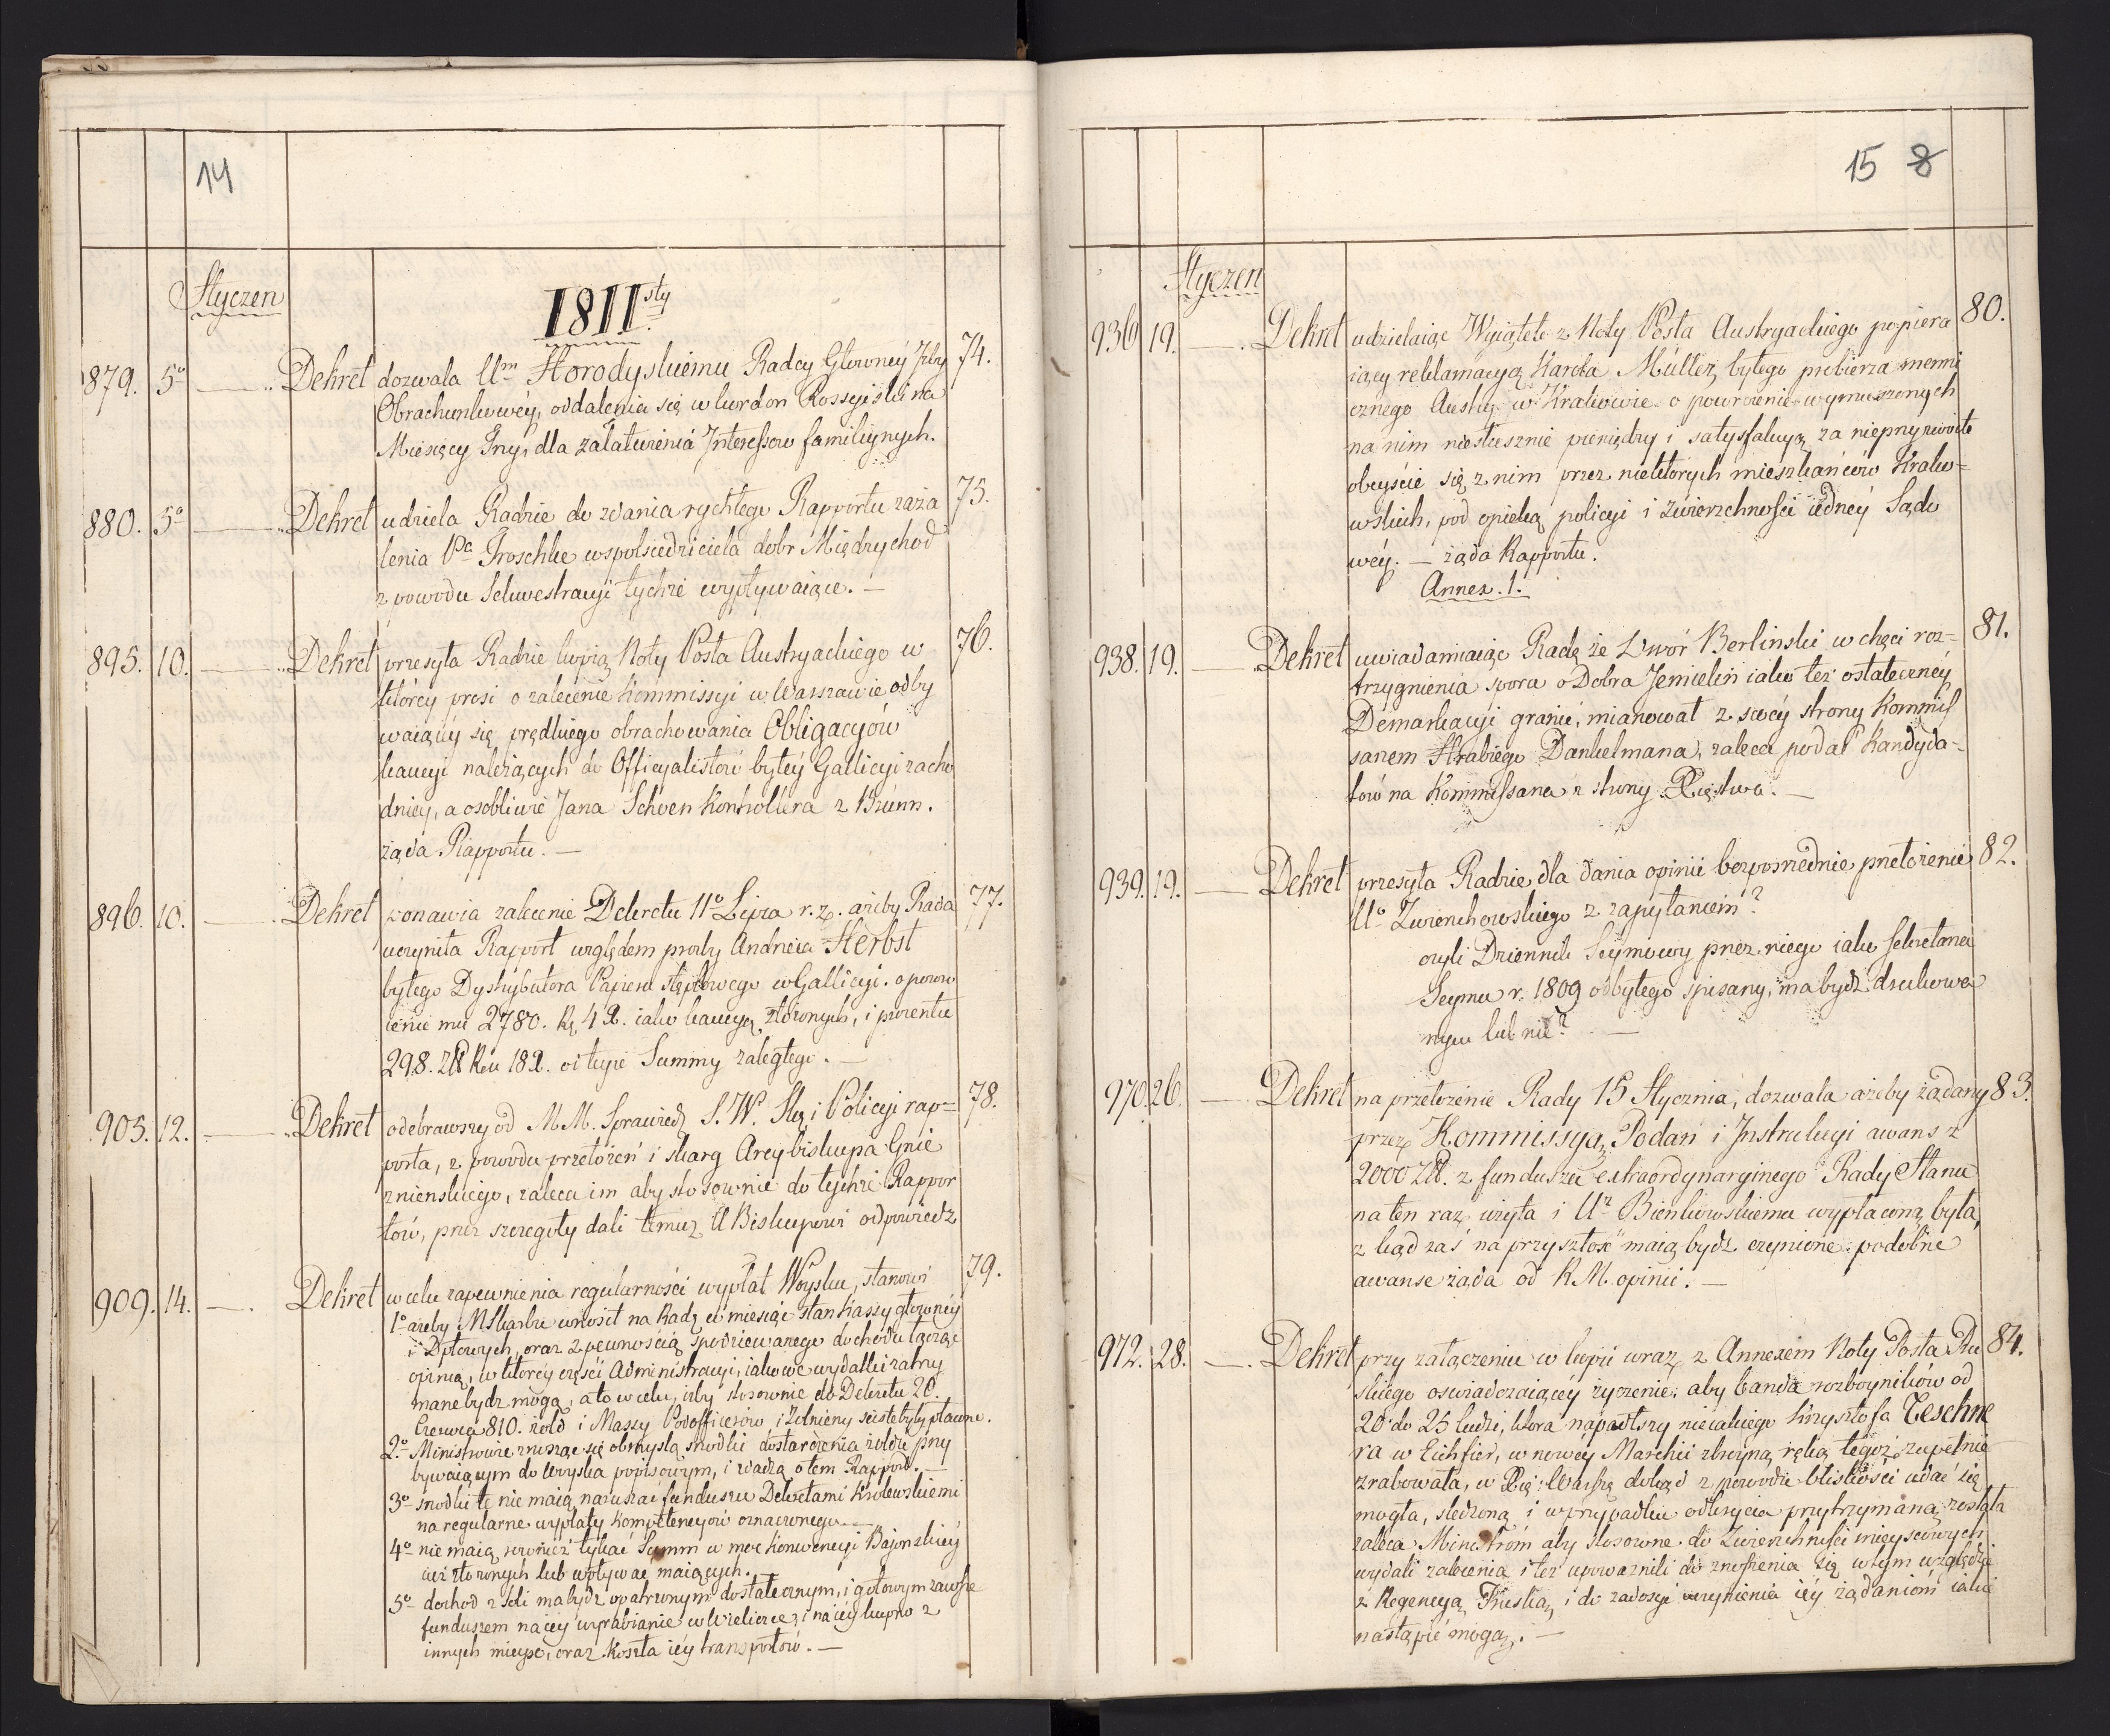 14
Styczen
1811sty
879. 5o Dekret dozwala Urm Horodyskiemu Radcy Głowney Izby 74.
Obrachunkowéy, oddalenia się w kordon Rossyiski na
Miesięcy dla załatwienia Interessow familiynych.
880. 5o Dekret udziela Radzie do zdania rychłego Rapportu zaża 75.
lenia Pa Troschke wspolsiedziciela dobr Międzychod
z powodu Sekwestracyi tychże wypływaiące. —
895. 10. Dekret przesyła Radzie kopią Noty Posła Austryackiego w 76.
którey prosi o zalecenie Kommissyi w Warszawie odby
waiącey się prędkiego obrachowania Obligacyów
kaucyi należących do Officyalistów byłéy Gallicyi zacho
dniey, a osobliwie Jana Schoen Kontrollera z Brünn.
żąda Rapportu. —
896. 10. Dekret ponawia zalecenie Dekretu 11o Lipca r. z. ażeby Rada 77.
uczyniła Rapport względem prosby Andrzeia Herbst
byłego Dystrybutora Papieru stęplowego w Gallicyi. o powro
cenie mu 2780. 42. iako kaucyą złożonych, i procentu
298. od teyże Summy zaległego. —
905. 12. Dekret odebrawszy od M. M. Sprawied S. W. i Policyi rap= 78.
porta, z powodu przełożeń i skarg Arcybiskupa Gnie
znienskiego, zaleca im aby stosownie do tychże Rappor
tów, przez szczegoły dali temuz U Biskupowi odpowiedz
909. 14. Dekret w celu zapewnienia regularności wypłat Woysku, stanowi 79.
1o ażeby MSkarbu wnosił na Radę co miesiąc stan Kassy głowney
i Dptowych, oraz z pewnością spodziewanego dochodu łącząc
opinią, w którey części Administracyi, iakowe wydatki zatrzy
mane bydz mogą, a to w celu, iżby stosownie do Dekretu 20.
Czerwca 810. żołd i Massy Podofficerów i Żołnierzy ściśle były płacone.
2o Ministrowie znosząc się obmyślą srodki dostarczenia żołdu przy
bywaiącym do Woyska popisowym, i zdadzą o tem Rapport. —
3o srodki te nie maią naruszać funduszu Dekretami Krolewskiemi
na regularne wypłaty Kompetencyów oznaczonego —
4o nie maią rownież tykać Summ w moc Konwencyi Bajonskiéy
iuż złożonych lub wpływać maiących.
5o dochod z Soli ma bydz opatrzonym dostatecznym, i gotowym zawsze
funduszem na iéy wyrabianie w Wieliczce, i na iéy kupno z
innych mieysc, oraz koszta iéy transportów. —
15 8
Styczen
936 19. Dekret udzielaiąc Wyiątek z Noty Posła Austryackiego popiera 80.
iącey reklamacyą Karola Müller, byłego probierza menni
cznego Austry. w Krakowie o powrocenie wymuszonych
na nim niesłusznie pieniędzy i satysfakcyą za nieprzyzwoite
obeyście się z nim przez niektórych mieszkańców Krako=
wskich, pod opieką policyi i zwierzchności iedney Sądo
wéy. — żąda Rapportu.
Annex. 1.
938. 19. Dekret uwiadamiaiąc Radę że Dwór Berlinski w chęci roz= 81.
trzygnienia sporu o Dobra Jemielin iako też ostateczney
Démarkacyi granic, mianował z swéy strony Kommis
sarzem Hrabiego Dankelmana, zaleca podać Kandyda=
tów na Kommissarza z strony Xięstwa. —
939. 19. Dekret przesyła Radzie dla dania opinii bezposrednie przełożenie 82.
Uo Zwierchowskiego z zapytaniem?
czyli Dziennik Seymowy przez niego iako sekretarza
Seymu r. 1809 odbytego spisany, ma bydź drukowa
nym lub nie? —
970. 26. Dekret na przełożenie Rady 15 Stycznia, dozwala ażeby żądany 83.
przez Kommissyą Podań i Instrukcyi awans z
2000 Złł. z funduszu extraordynaryinego Rady Stanu
na ten raz użyta i Ur Bienkowskiemu wypłaconą była,
z kąd zaś na przyszłość maią bydź czynione podobne
awanse żąda od R. M. opinii. —
972. 28. Dekret przy załączeniu w kopii wraz z Annexem Noty Posła Pru 84.
skiego oswiadczaiącéy życzenie, aby banda rozboyników od
20 do 25 ludzi, która napadłszy nieiakiego Krzysztofa Teschne
ra w Eichfier, w nowéy Marchii zbroyną ręką tegoż zupełnie
zrabowała, w Xię: Warsz dokąd z powodu bliskości udać się
mogła, sledzoną i w przypadku odkrycia przytrzymaną została
zaleca Ministróm aby stosowne do Zwierzchności mieyscowych
wydali zalecenia i też upoważnili do znoszenia się w tym względzie
z Regencyą Pruską i do zadosyć uczynienia iéy żądaniom iakie
nastąpić mogą. —